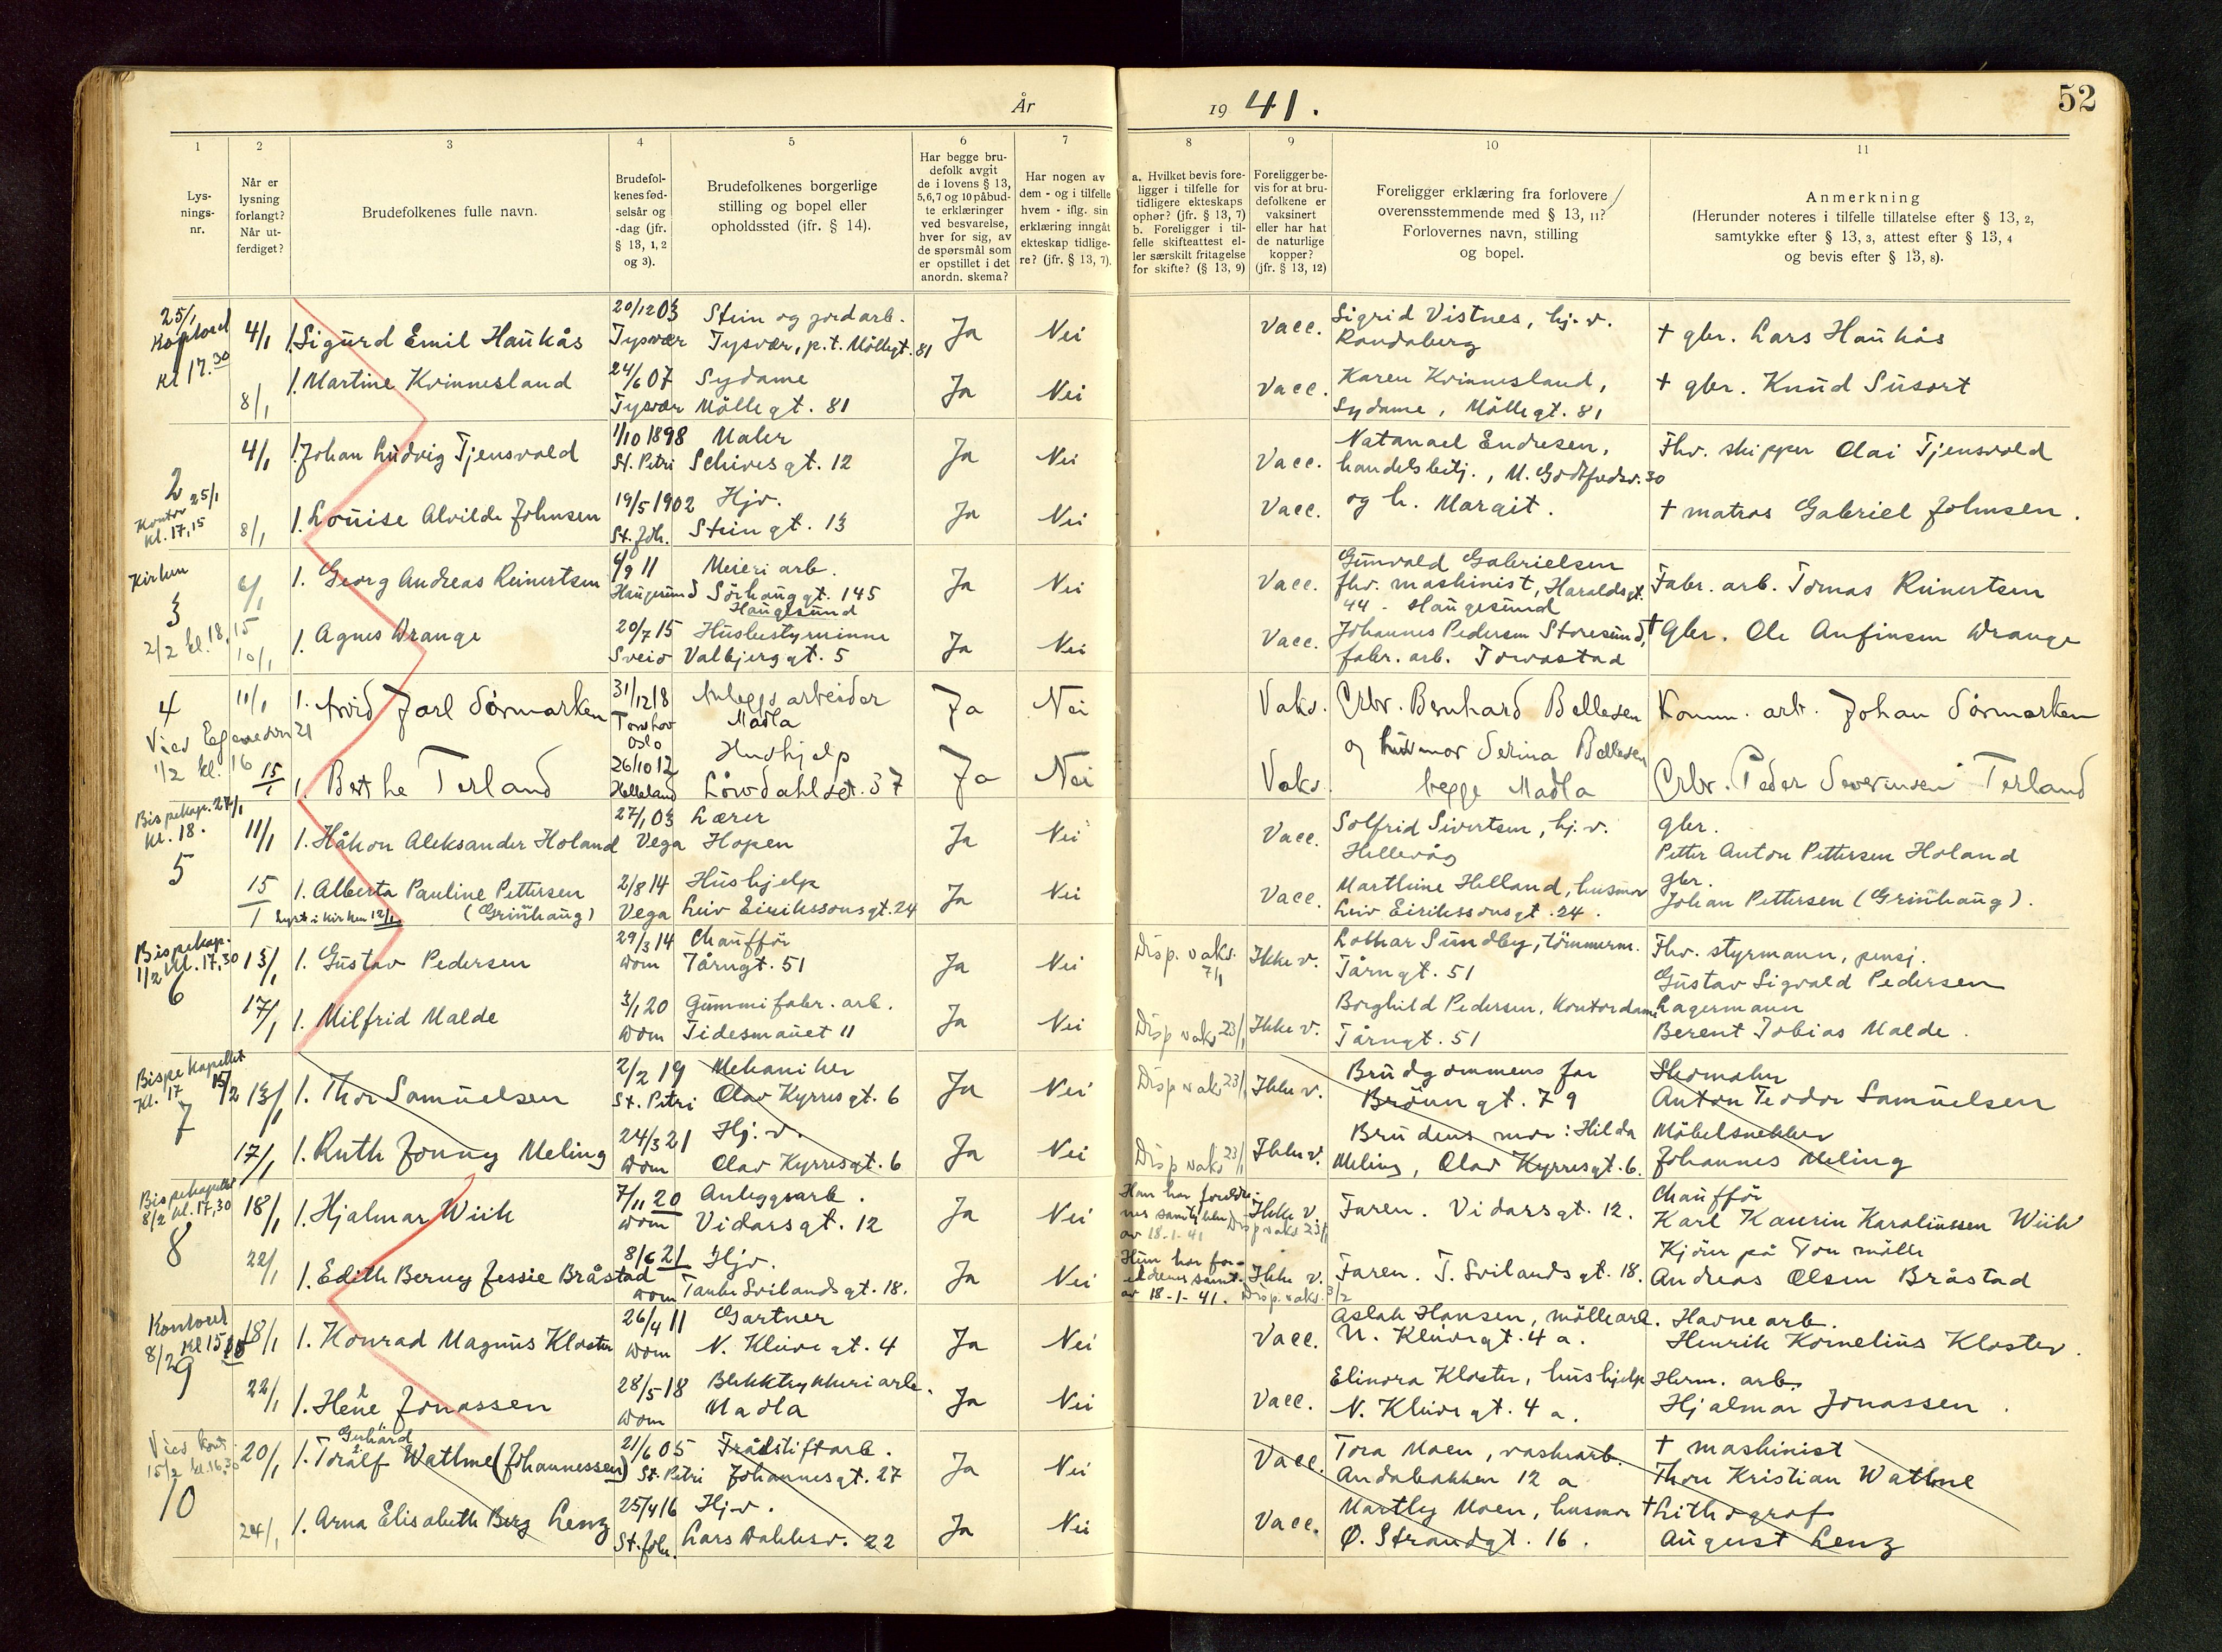 År
19 41.
52
1
Lys-
nings-
nr.
2
Når er
lysning
forlangt?
Når ut-
ferdiget?
3
Brudefolkenes fulle navn.
4
Brudefol-
kenes fød-
selsår og
-dag (jfr.
§ 13, 1, 2
og 3).
5
Brudefolkenes borgerlige
stilling og bopel eller
opholdssted (jfr. § 14).
6
Har begge bru-
defolk avgit
de i lovens § 13,
5,6,7 og 10 påbud-
te erklæringer
ved besvarelse,
hver for sig, av
de spørsmål som
er opstillet i det
anordn. skema?
7
Har nogen av
dem - og i tilfelle
hvem - iflg. sin
erklæring inngåt
ekteskap tidlige-
re? (jfr. § 13, 7).
8
a. Hvilket bevis fore-
ligger i tilfelle for
tidligere ekteskaps
ophør? (jfr. § 13, 7)
b. Foreligger i til-
felle skifteattest el-
ler særskilt fritagelse
for skifte? (§ 13, 9)
9
Foreligger be-
vis for at bru-
defolkene er
vaksinert
eller har hat
de naturlige
kopper?
(jfr. § 13, 12)
10
Foreligger erklæring fra forlovere
overensstemmende med § 13, 11?
Forlovernes navn, stilling
og bopel.
11
Anmerkning
(Herunder noteres i tilfelle tillatelse efter § 13, 2,
samtykke efter § 13, 3, attest efter § 13, 4
og bevis efter § 13, 8).
25/1
Kontoret
1
kl 17.30
4/1
1. Sigurd Emil Haukås
20/12 03
Tysvær
Stein og jordarb.
Tysvær, p.t. Møllegt. 81
Ja
Nei
Vacc.
Sigrid Vistnes, hj.v.
Randaberg
† gbr. Lars Haukås
8/1
1. Martine Kvinnesland
24/6 07
Tysvær
Sydame
Møllegt. 81
Ja
Nei
Vacc.
Karen Kvinnesland,
Sydame, Møllegt. 81
† gbr. Knud Susort
2
Kontor 25/1
kl. 17,15
4/1
1. Johan Ludvig Tjensvold
1/10 1898
St. Petri
Maler
Schivesgt. 12
Ja
Nei
Vacc.
Natanael Endresen,
handelsbetj., M. Godtfredsv. 30
Fhv. skipper Olai Tjensvold
8/1
1. Louise Alvilde Johnsen
19/5 1902
St. Joh.
Hjv.
Steingt. 13
Ja
Nei
Vacc.
og h. Margit.
† matros Gabriel Johnsen.
Kirken
3
2/2 kl. 18,15
6/1
1. Georg Andreas Reinertsen
6/9 11
Haugesund
Meieriarb.
Sörhauggt. 145
Haugesund
Ja
Nei
Vacc.
Gunvald Gabrielsen
fhv. maskinist, Haraldsgt.
44 - Haugesund
Fabr. arb. Tomas Reinertsen
10/1
1. Agnes Drange
20/7 15
Sveio
Husbestyrerinne
Valbjerggt. 5
Ja
Nei
Vacc.
Johannes Pedersen Storesund,
fabr. arb. Torvastad
† Gbr. Ole Anfinsen Drange
4
Vied Egenesvn 21
1/2 kl. 16
11/1
1. Arvid Jarl Sörmarken
31/12 18
Torshov
Oslo
Anleggsarbeider
Madla
Ja
Nei
Vaks.
Crbr. Bernhard Bellesen
Komm. arb. Johan Sörmarken
15/1
1. Berthe Terland
26/10 12
Helleland
Hushjelp
Lövdahlsgt. 37
Ja
Nei
Vaks.
og husmor Serina Bellesen
begge Madla
Crbr. Peder Severinsen Terland
Bispekap. 27/1
kl. 18.
5
11/1
1. Håkon Aleksander Holand
27/1 03
Vega
Lærer
Hopen
Ja
Nei
Vacc.
Solfrid Sivertsen, hj.v.
Hellevåg
gbr.
Petter Anton Pettersen Holand
15/1
1. Alberta Pauline Pettersen
Lyst i kirken 12/1 (Grinhaug)
2/8 14
Vega
Hushjelp
Leiv Eirikssonsgt. 24
Ja
Nei
Vacc.
Marthine Helland, husmor
Leiv Eirikssonsgt. 24.
gbr.
Johan Pettersen (Grinhaug).
Bispekap.
1/2 kl. 17,30
6
13/1
1. Gustav Pedersen
29/3 14
Dom
Chaufför
Tårngt. 51
Ja
Nei
Disp. vaks.
7/1
Ikke v.
Lothar Sundby, tömmerm.
Tårngt. 51
Fhv. styrmann, pensj.
Gustav Sigvald Pedersen
17/1
1. Milfrid Malde
3/1 20
Dom
Gummifabr. arb.
Tidesmauet 11
Ja
Nei
Disp vaks 23/1
Ikke v.
Borghild Pedersen, Kontordame
Tårngt. 51
Lagermann
Berent Tobias Malde.
Bispekapellet
Kl. 17 15/2
7
13/1
1. Thor Samuelsen
2/2 19
St. Petri
Mekaniker
Olav Kyrresgt. 6
Ja
Nei
Disp vaks 23/1
Ikke v.
Brudgommens far
Bröungt. 79
Skomaker
Anton Teodor Samuelsen
17/1
1. Ruth Jonny Meling
24/3 21
Dom
Hj.v.
Olav Kyrresgt. 6
Ja
Nei
Disp vaks 23/1
Ikke v.
Brudens mor: Hilda
Meling, Olav Kyrresgt. 6.
Möbelsnekker
Johannes Meling
Bispekapellet
8/2 kl. 17,30
8
18/1
1. Hjalmar Wiik
7/11 20
Dom
Anleggsarb.
Vidarsgt. 12
Ja
Nei
Han har foreldre-
nes samtykke
av 18-1-41
Ikke v.
Disp vaks 23/1
Faren. Vidarsgt. 12.
Chaufför
Karl Kaurin Karolinssen Wiik
22/1
1. Edith Berny Jessie Bråstad
8/6 21
Dom
Hjv.
Tanke Svilandsgt. 18.
Ja
Nei
Hun har for-
eldrenes samt.
av 18-1-41.
Ikke v.
Disp. vaks. 3/2
Faren. T. Svilandsgt. 18.
Kjörer på Tou mölle
Andreas Olsen Bråstad
Kontoret
8/2 kl 15
9
18/1
1. Konrad Magnus Kloster
26/4 11
Dom
Gartner
N. Kleivegt. 4
Ja
Nei
Vacc.
Aslak Hansen, möllearb.
N. Kleivegt. 4 a.
Havnearb.
Henrik Kornelius Kloster.
22/1
1. Helle Jonassen
28/5 18
Dom
Blekktrykkeriarb.
Madla
Ja
Nei
Vacc.
Elinora Kloster, hushjelp
N. Kleivegt. 4 a.
Herm. arb.
Hjalmar Jonassen.
Vied kont.
15/2 kl. 16,30
10
20/1
Gerhard
1. Toralf Wathne (Johannessen)
21/6 05
St. Petri
Trådstiftarb.
Johannesgt. 27
Ja
Nei
Vacc.
Tora Moen, vaskearb.
Andabakken 12 a
† maskinist
Thore Kristian Wathne
24/1
1. Arna Elisabeth Berg Lenz
25/4 16
St. Joh.
Hj.v.
Lars Dahlesv. 22
Ja
Nei
Vacc.
Marthy Moen, husmor
Ø. Strandgt. 16.
† Lithograf
August Lenz